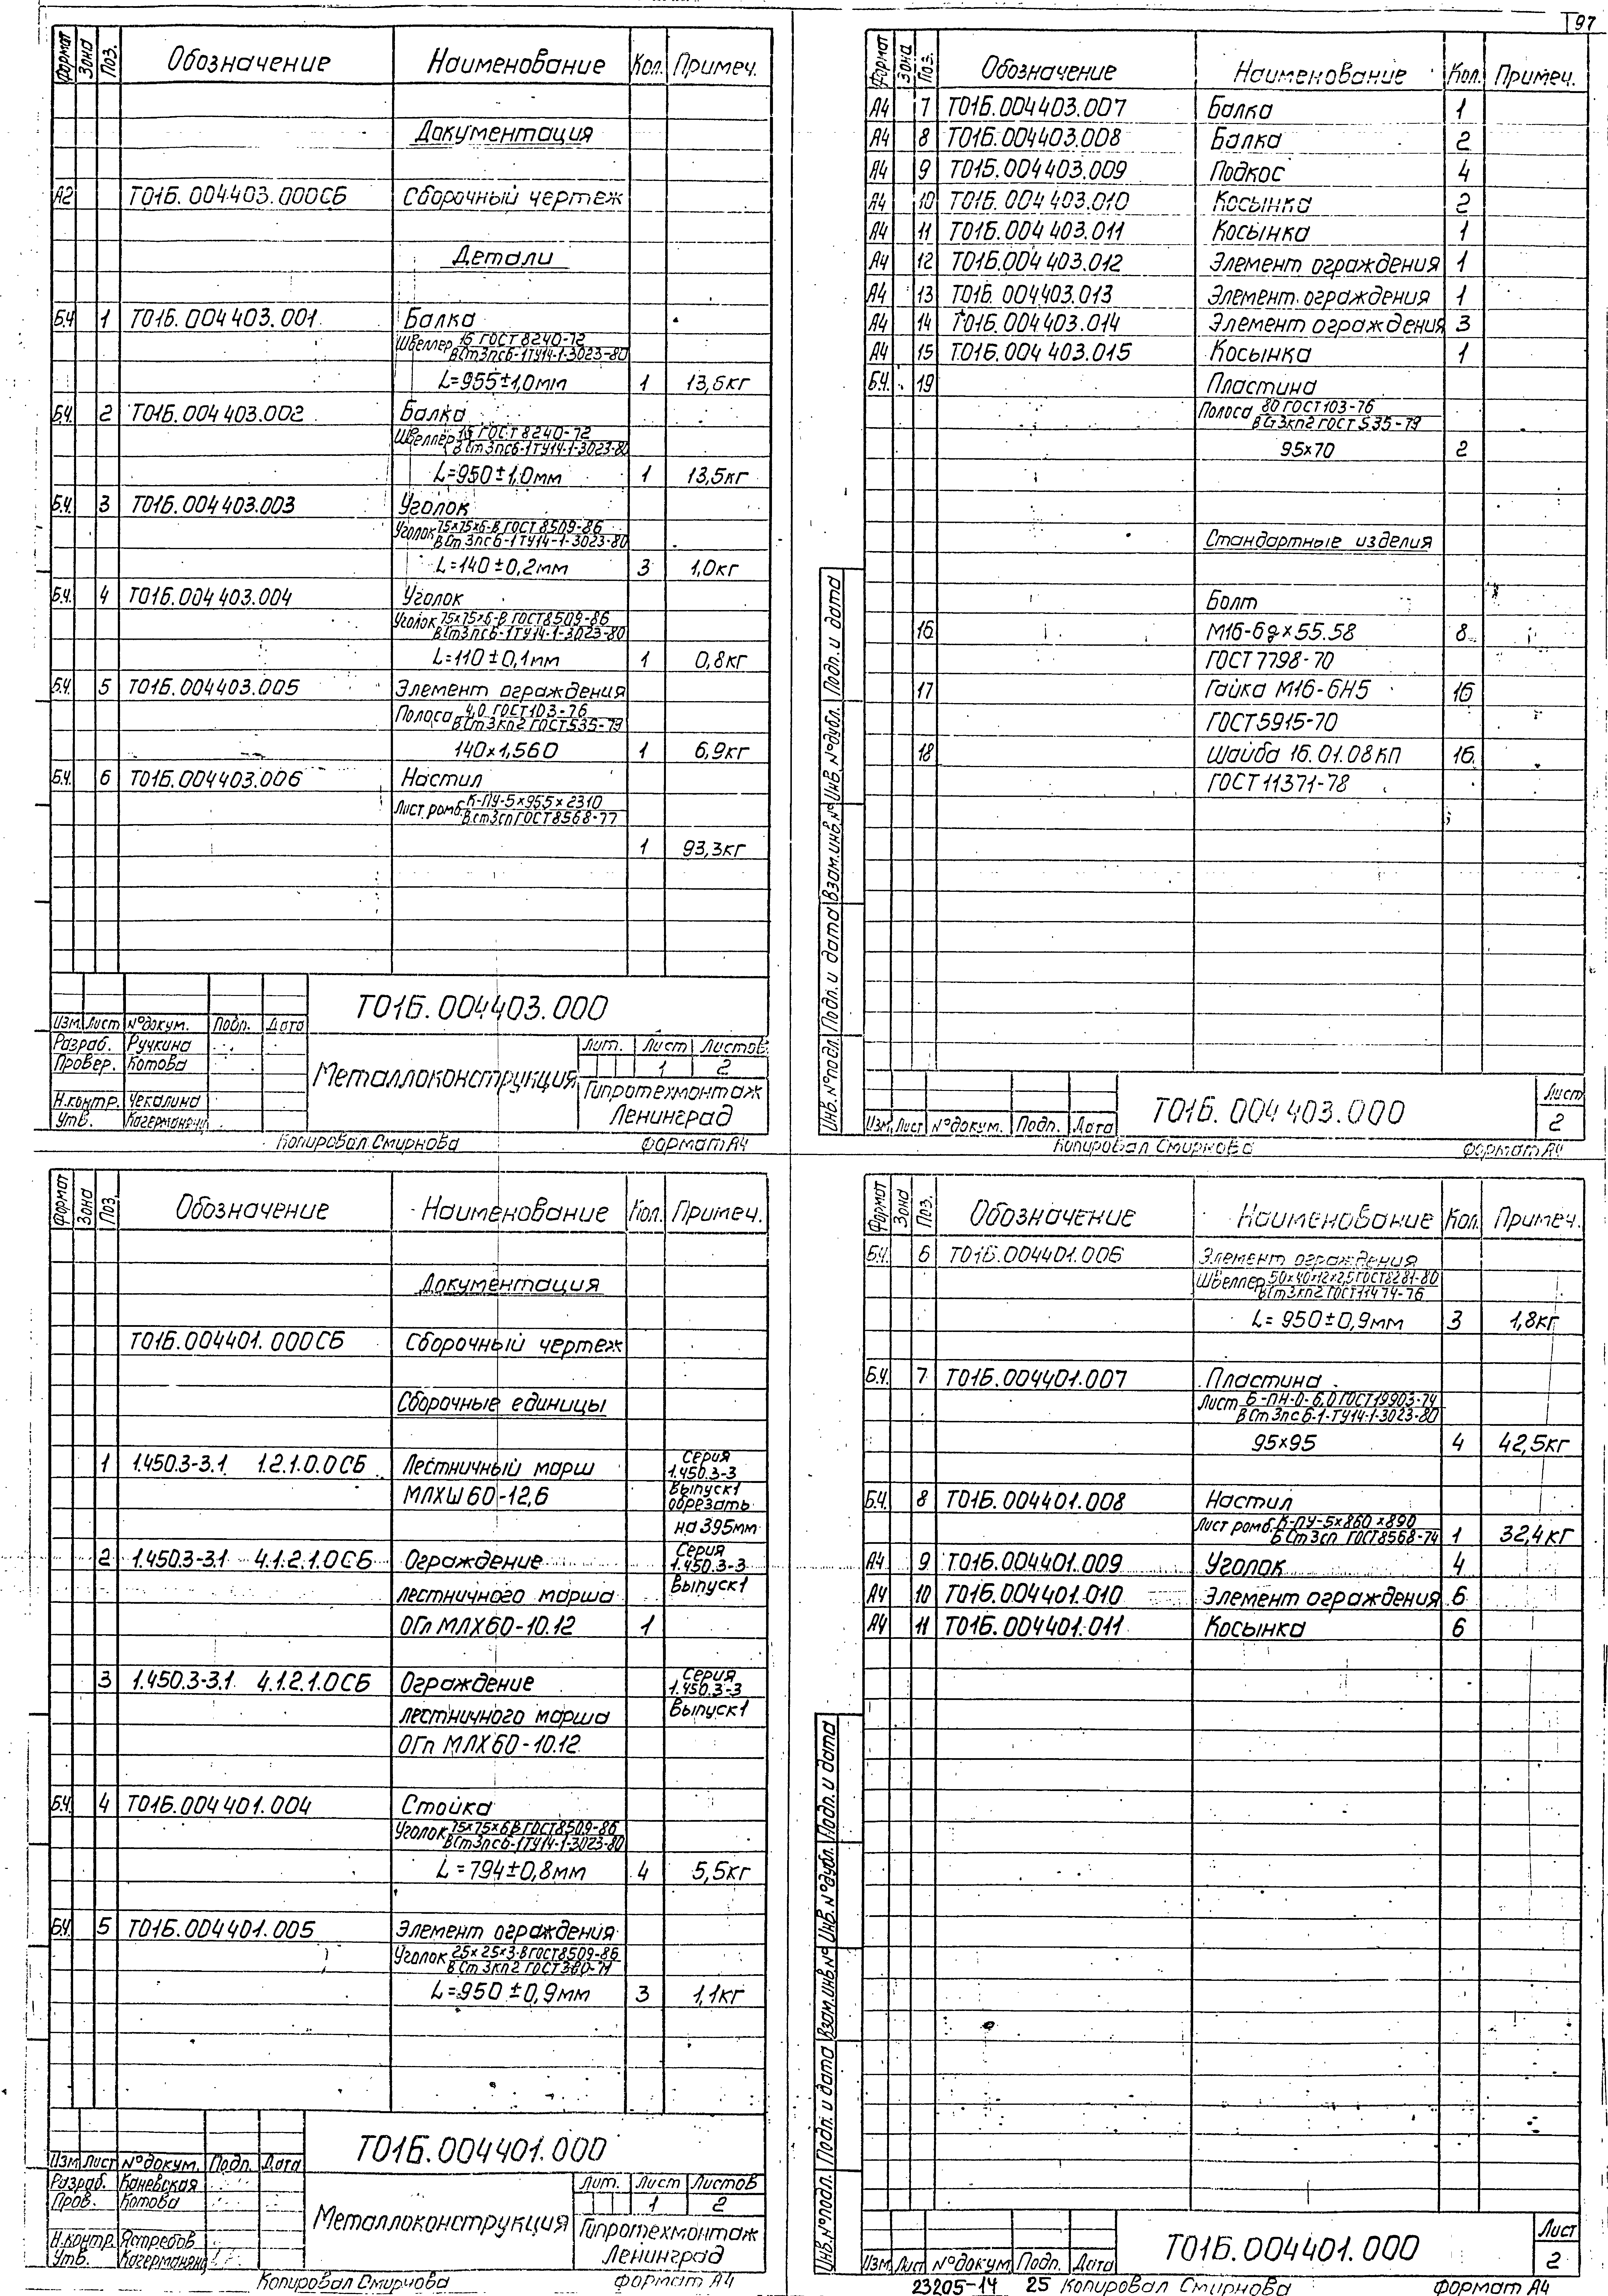 97
Формат Зона Поз. Обозначение Наименование Кол. Примеч.
Документация
А2 Т01Б.004403.000СБ Сборочный чертеж
Детали
Б.Ч 1 Т01Б.004403.001 Балка
Швеллер 16 ГОСТ 8240-72
ВСт3пс6-1ТУ14-1-3023-80
L=955±1,0мм 1 13,6кг
Б.Ч 2 Т01Б.004403.002 Балка
Швеллер 16 ГОСТ 8240-72
ВСт3пс6-1ТУ14-1-3023-80
L=950±1,0мм 1 13,5кг
Б.Ч. 3 Т01Б.004403.003 Уголок
Уголок 75х75х6-В ГОСТ 8509-86
ВСт3пс6-1ТУ14-1-3023-80
L=140±0,2мм 3 1,0кг
Б.Ч. 4 Т01Б.004403.004 Уголок
Уголок 75х75х6-В ГОСТ8509-86
ВСт3пс6-1ТУ14-1-3023-80
L=110±0,1мм 1 0,8кг
Б.Ч. 5 Т01Б.004403.005 Элемент ограждения
Полоса 4,0 ГОСТ103-76
ВСт3кп2 ГОСТ535-79
140х1,560 1 6,9кг
Б.Ч. 6 Т01Б.004403.006 Настил
Лист ромб. К-ПУ-5х955х2310
ВСт3сп ГОСТ8568-77
1 93,3кг
Т01Б.004403.000
Изм. Лист №докум. Подп. Дата
Разраб. Ручкина
Провер. Котова
Н.контр. Чекалина
Утв. 
Металлоконструкция
Лит. Лист Листов
1 2
Гипротехмонтаж
Ленинград
Копировал Смирнова Формат А4
Формат Зона Поз. Обозначение Наименование Кол. Примеч.
А4 7 Т01Б.004403.007 Балка 1
А4 8 Т01Б.004403.008 Балка 2
А4 9 Т01Б.004403.009 Подкос 4
А4 10 Т01Б.004403.010 Косынка 2
А4 11 Т01Б.004403.011 Косынка 1
А4 12 Т01Б.004403.012 Элемент ограждения 1
А4 13 Т01Б.004403.013 Элемент ограждения 1
А4 14 Т01Б.004403.014 Элемент ограждения 3
А4 15 Т01Б.004403.015 Косынка 1
Б.Ч. 19 Пластина
Полоса 80 ГОСТ103-76
ВСт3кп2 ГОСТ535-79
95х70 2
Стандартные изделия
Болт
16 М16-6gх55.58 8
ГОСТ7798-70
17 Гайка М16-6Н5 16
ГОСТ5915-70
18 Шайба 16.01.08КП 16
ГОСТ11371-78
Инв.№подл. Подп. и дата Взам.инв.№ Инв.№дубл. Подп. и дата
Изм. Лист №докум. Подп. Дата
Т01Б.004403.000
Лист
2
Копировал Смирнова Формат А4
Формат Зона Поз. Обозначение Наименование Кол. Примеч.
Документация
Т01Б.004401.000СБ Сборочный чертеж
Сборочные единицы
1 1.450.3-3.1 1.2.1.0.0СБ Лестничный марш Серия 1.450.3-3
МЛХШ60-12,6 Выпуск1 обрезать
на 395мм
2 1.450.3-3.1 4.1.2.1.0СБ Ограждение Серия 1.450.3-3
лестничного марша Выпуск1
ОГл МЛХ60-10.12 1
3 1.450.3-3.1 4.1.2.1.0СБ Ограждение Серия 1.450.3-3
лестничного марша Выпуск1
ОГп МЛХ60-10.12
Б.Ч. 4 Т01Б.004401.004 Стойка
Уголок 75х75х6В ГОСТ8509-86
ВСт3пс6-1ТУ14-1-3023-80
L=794±0,8мм 4 5,5кг
Б.Ч. 5 Т01Б.004401.005 Элемент ограждения
Уголок 25х25х3-В ГОСТ8509-86
ВСт3кп2 ГОСТ380-71
L=950±0,9мм 3 1,1кг
Т01Б.004401.000
Изм. Лист №докум. Подп. Дата
Разраб. Каневская
Пров. Котова
Н.контр. Ястребов
Утв. 
Металлоконструкция
Лит. Лист Листов
1 2
Гипротехмонтаж
Ленинград
Копировал Смирнова Формат А4
Формат Зона Поз. Обозначение Наименование Кол. Примеч.
Б.Ч. 6 Т01Б.004401.006 Элемент ограждения
Швеллер 50х40х12х2,5 ГОСТ8281-80
ВСт3кп2 ГОСТ11474-76
L=950±0,9мм 3 1,8кг
Б.Ч. 7 Т01Б.004401.007 Пластина
Лист Б-ПН-О-6,0 ГОСТ19903-74
ВСт3пс6-1-ТУ14-1-3023-80
95х95 4 42,5кг
Б.Ч. 8 Т01Б.004401.008 Настил
Лист ромб. К-ПУ-5х860х890
БСт3сп ГОСТ8568-74 1 32,4кг
А4 9 Т01Б.004401.009 Уголок 4
А4 10 Т01Б.004401.010 Элемент ограждения 6
А4 11 Т01Б.004401.011 Косынка 6
Инв.№подл. Подп. и дата Взам.инв.№ Инв.№дубл. Подп. и дата
Изм. Лист №докум. Подп. Дата
Т01Б.004401.000
Лист
2
23205-14 25 Копировал Смирнова Формат А4